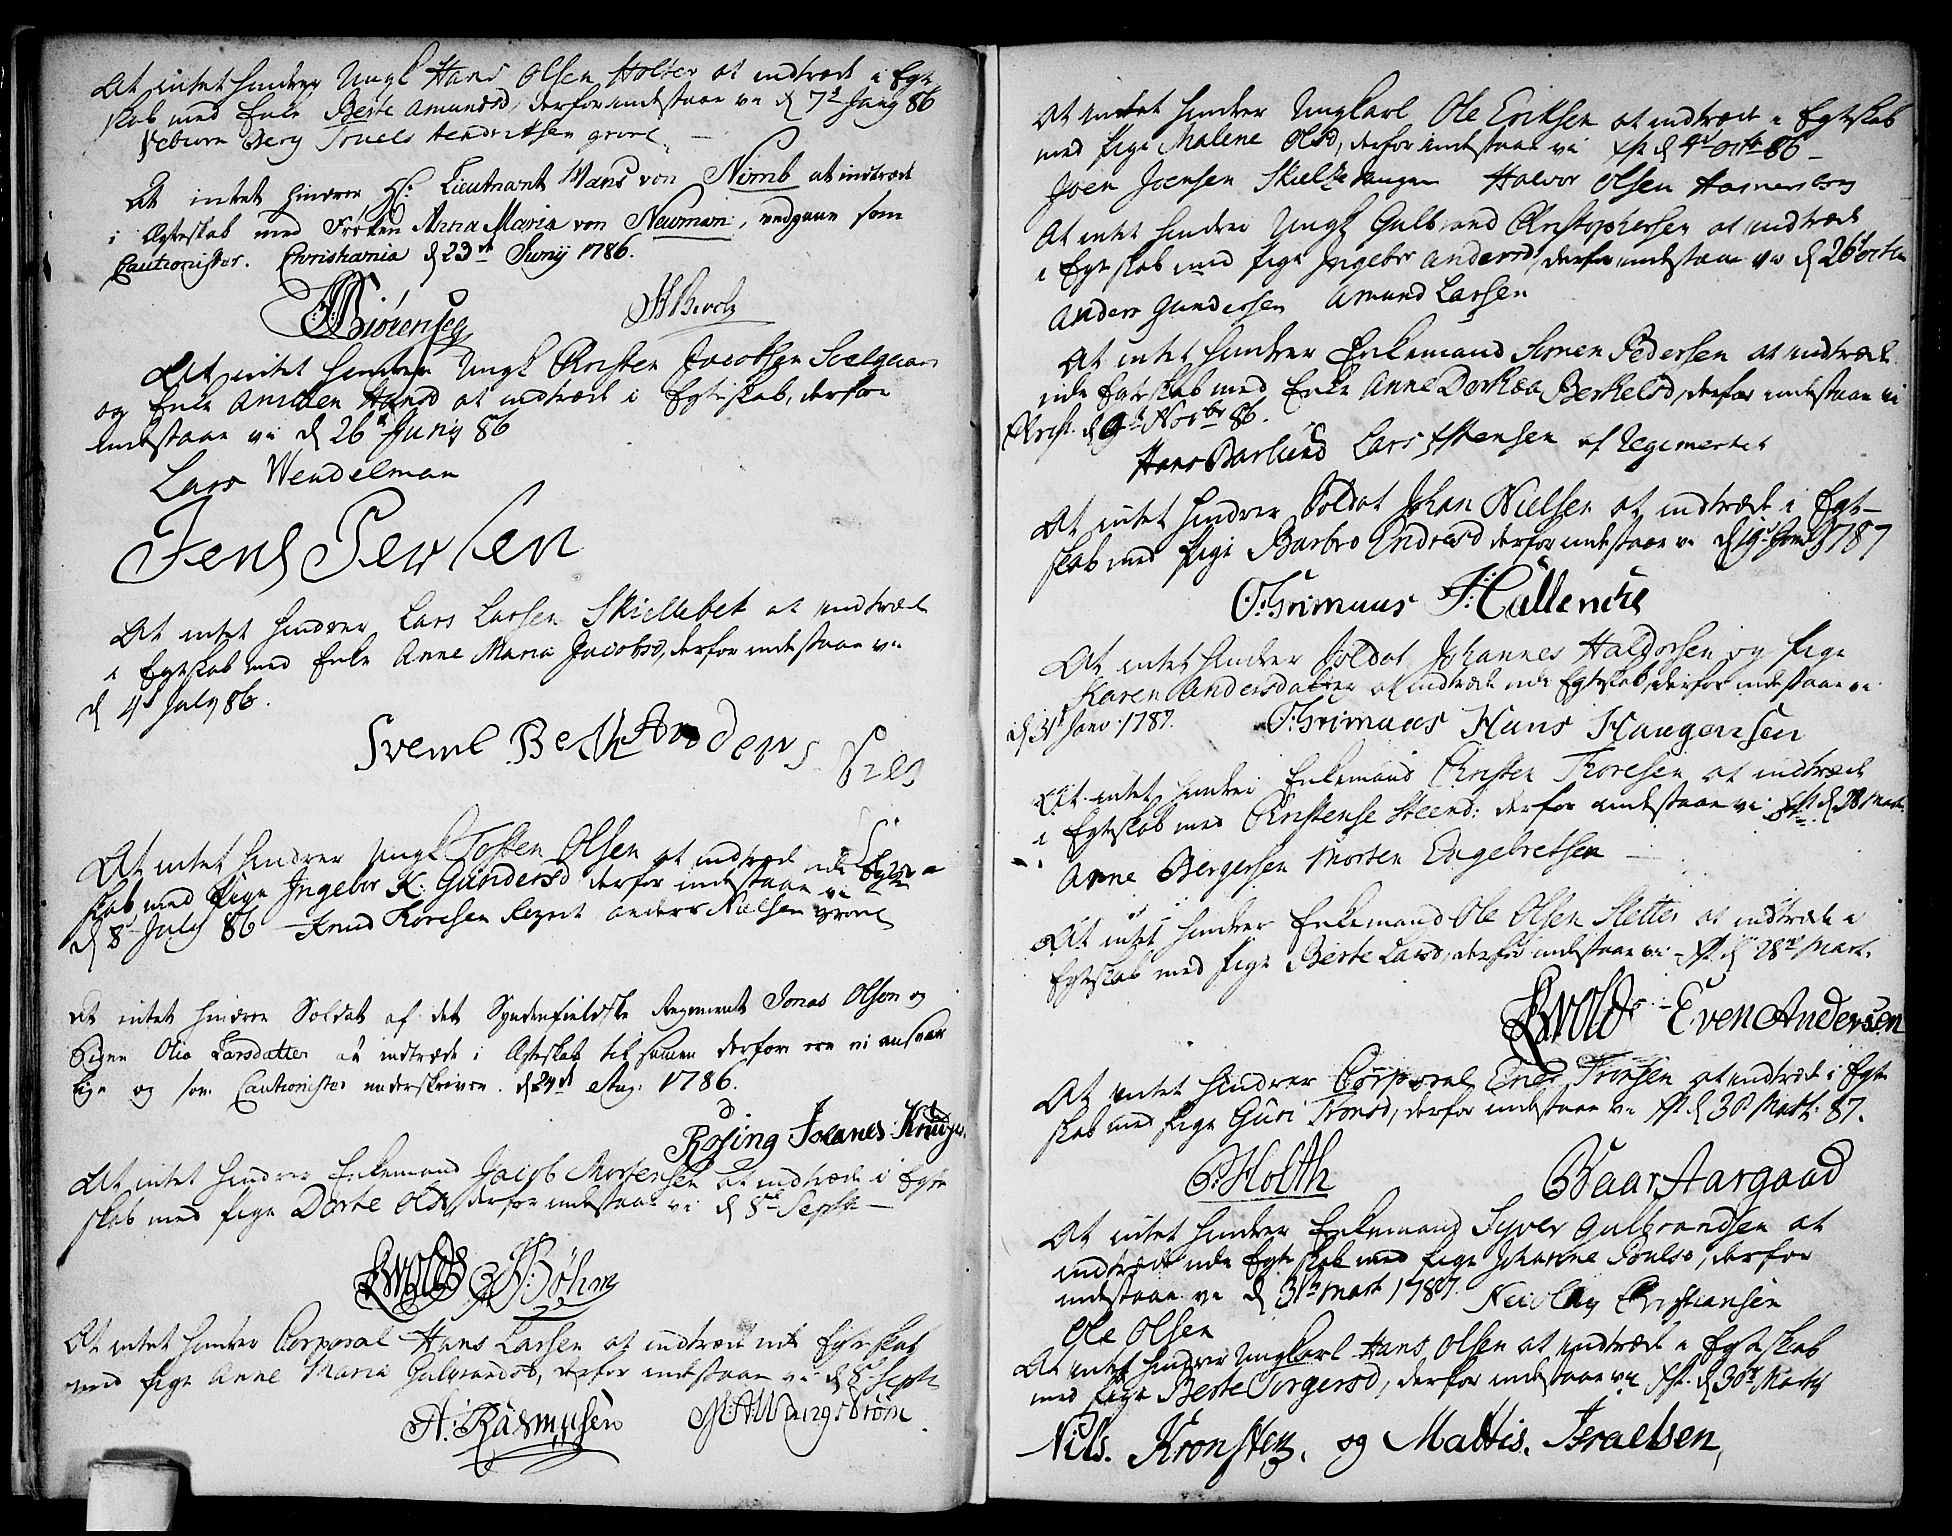 At intet hindrer Ungk Hans Olsen Holter at indtræde i Egte-
skab med Enke Berte Amundsd, derfor indestaae vi d 7d Janj 86
Berg Truels Hendriksen
At intet hindrer Hr: Lieutnant Hans von Nimb at indtræde
i Ægteskab med Frøken Anna Maria von Neuman, vedgaae som
Cautionister. Christiania d 23de Junij 1786.
At intet hindrer Ungk Christen Jacobsen Soelgaard
og Enke Hansd at indtræde i Egteskab, derfore
indestaae vi d 26d Junij 86
Lars Wendelman
Jens Persen
At intet hindrer Lars Larsen Skiellebek at indtræde
i Egteskab med Enke Anne Maria Jacobsd, derfor indestaae vi
d 4d July 86.
At intet hindrer Ungk Tosten Olsen at indtræde udi Egte-
skab med Pige Ingebor K. Gundersd derfor indestaae vi
d 8d July 86 Knud Thoresen Anders Nielsen
At intet hindrer Soldat af det Syndenfieldske Regiment Jonas Olsen og
Pigen Olia Larsdatter at indtræde i Ægteskab til samen derfore ere vi ansvar
lige og som Cautionister underskriver. d 24de Aug: 1786.
Rosing Joanes Krüger
At intet hindrer Enkemand Jacob Mortensen at indtræde i Egte
skab med Pige Dorte Olsd, derfor indestaae vi d 8de Septb
At intet hindrer Corporal Hans Larsen at indtræde udi Egteskab
med Pige Anne Maria Gulbrandsd, derfor indestaae vi d 8 Septb
A. Rasmusen
At intet hindrer Ungkarl Ole Eriksen at indtræde i Egteskab
med Pige Malene Olsd, derfor indestaae vi Xst d 4d Octb 86
Joen Joensen Halvor Olsen
At intet hindrer Ungk Gulbrand Christophersen at indtræde
i Egteskab med Pige Ingebor Andersd, derfor indestaae vi d 26d Octbr
Anders Gundersen Amund Larsen
At intet hindrer Enkemand Simen Pedersen at indtræde
udi Egteskab med Enke Anne Dorthea Berthelsd, derfor indestaae vi
Christ. d 9d Novbr 86.
Hans Barlund Lars Estensen af Regimentet
At intet hindrer Soldat Johan Nielsen at indtræde i Egte-
skab med Pige Barbro Endresd derfor indestaae vi d 19d Janj 1787
At intet hindrer Soldat Johannes Haldorsen og Pige
Karen Andersdatter at indtræde udi Egteskab, derfor indestaae vi
d 31d Janv: 1787. Hans Haugensen
At intet hindrer Enkemand Christen Thoresen at indtræde
i Egteskab med Christense Steend: derfor indestaae vi Xst d 28 Marti
Arne Bergersen Morten Engebretsen
At intet hindrer Enkemand Ole Olsen Sletter at indtræde i
Egteskab med Pige Berte Larsd, derfor indestaae vi Xst d 28de Mart.
Even Andersen
At intet hindrer Corporal Tronsen at indtræde i Egte
skab med Pige Guri Tronsd, derfor indestaae vi Xst d 30 Mart: 87.
Holth Baar Aargaad
At intet hindrer Enkemand Syver Gulbrandsen at
indtræde udi Egteskab med Pige Johanne Poulsd, derfor
indestaae vi d 31te Mart 1787. Nicolay Christiansen
Ole Olsen
At intet hindrer Ungkarl Hans Olsen at indtræde i Egteskab
med Pige Berte Torgersd, derfor indestaae vi Xst. d 30te Martj
Nils. Kronsten. og Mattis. Israelsen,